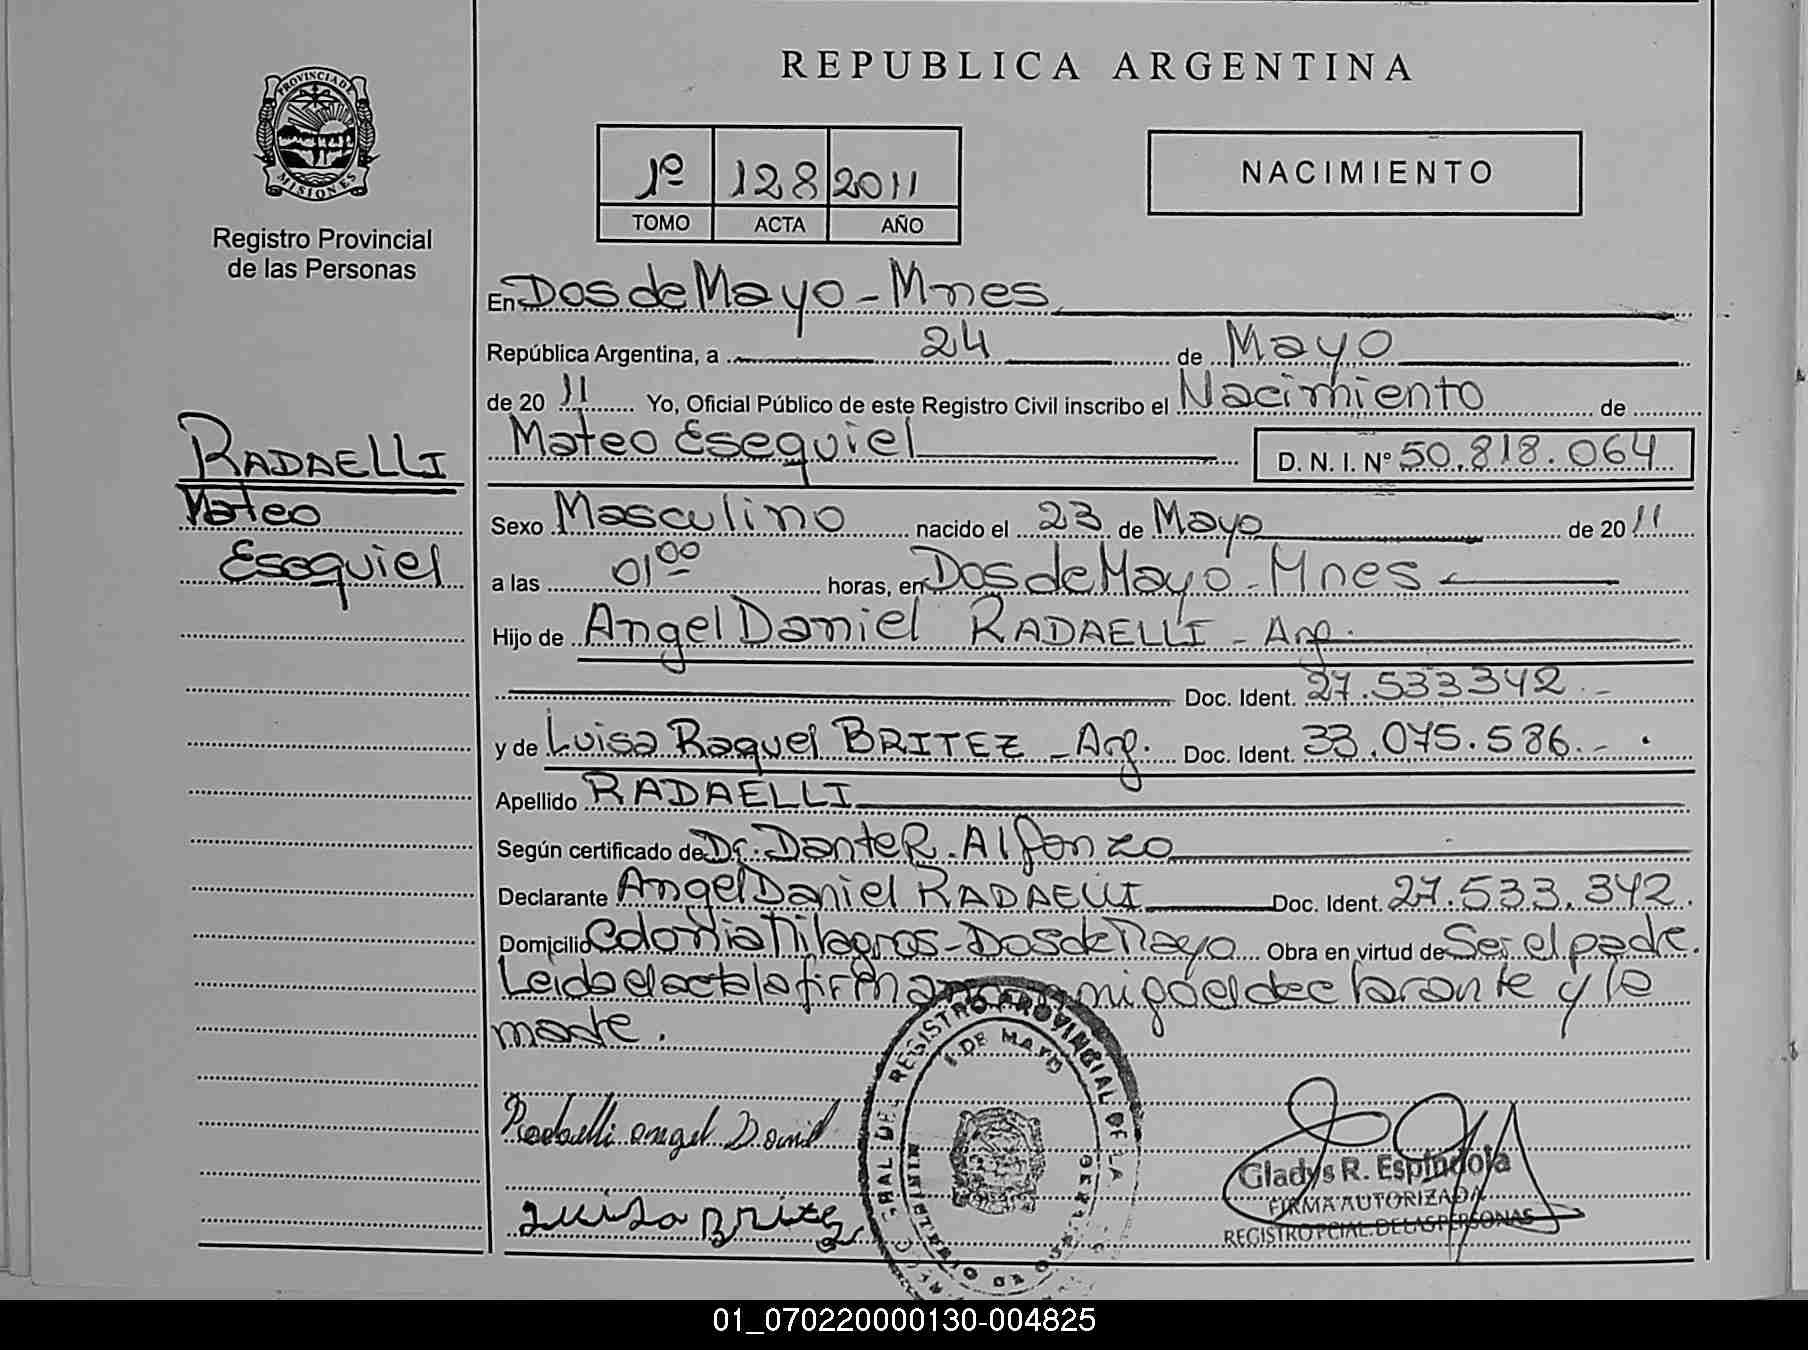 PROVINCIA DE
MISIONES
Registro Provincial
de las Personas
RADAELLI
Mateo
Esequiel
REPUBLICA ARGENTINA
1º 128 2011
TOMO ACTA AÑO
NACIMIENTO
En Dos de Mayo - Mnes
República Argentina, a 24 de Mayo
de 20 11 Yo, Oficial Público de este Registro Civil inscribo el Nacimiento de
Mateo Esequiel D. N. I. Nº 50.818.064
Sexo Masculino nacido el 23 de Mayo de 20 11
a las 01⁰⁰ horas, en Dos de Mayo - Mnes
Hijo de Angel Daniel RADAELLI - Arg.
Doc. Ident. 27.533342.-
y de Luisa Raquel BRITEZ - Arg. Doc. Ident. 33.075.586.-
Apellido RADAELLI
Según certificado de Dr. Dante R. Alfonzo
Declarante Angel Daniel RADAELLI Doc. Ident. 27.533.342.
Domicilio Colonia Milagros - Dos de Mayo Obra en virtud de Ser el padre.
Leida el acta la firman conmigo el declarante y la
madre.
REGISTRO PROVINCIAL DE LA
DE MAYO
Radaelli angel Daniel
Luisa Britez
Gladys R. Espindola
FIRMA AUTORIZADA
REGISTRO PCIAL. DE LAS PERSONAS
01_070220000130-004825